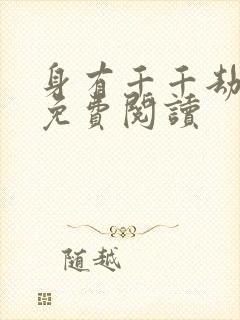 身有千千劫
免費閱讀
随越